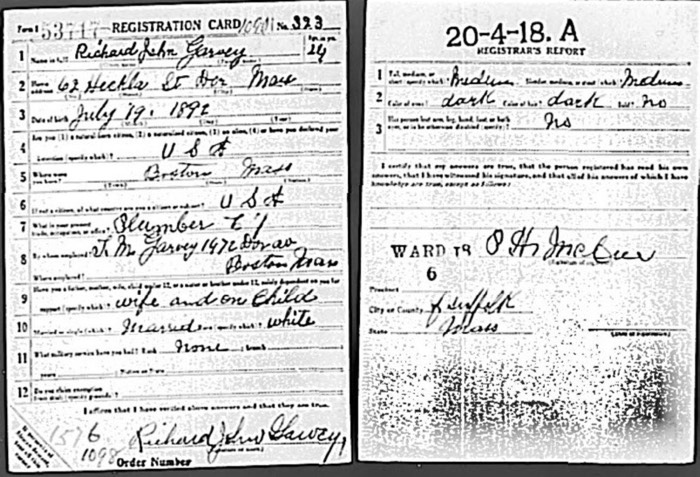 Form 1 53717 REGISTRATION CARD No. 323
1 Name in full Richard John Garvey Age, in yrs. 24
2 Home address 62 Heckla St Dor Mass
3 Date of birth July 19. 1892
4 Are you (1) a natural-born citizen, (2) a naturalized citizen, (3) an alien, (4) or have you declared your
intention (specify which)? U S A
5 Where were you born? Boston Mass
6 If not a citizen, of what country are you a citizen or subject? U S A
7 What is your present trade, occupation, or office? Plumber
8 By whom employed? T. M. Garvey 1972 Dor av
Where employed? Boston Mass
9 Have you a father, mother, wife, child under 12, or a sister or brother under 12, solely dependent on you for
support (specify which)? wife and one Child
10 Married or single (which)? Married Race (specify which)? white
11 What military service have you had? Rank none branch
years Nation or State
12 Do you claim exemption from draft (specify grounds)?
I affirm that I have verified above answers and that they are true.
1576
1098
Richard John Garvey
Order Number
20-4-18. A
REGISTRAR'S REPORT
1 Tall, medium, or short (specify which)? Medium Slender, medium, or stout (which)? Medium
2 Color of eyes? dark Color of hair? dark Bald? No
3 Has person lost arm, leg, hand, foot, or both eyes, or is he otherwise disabled (specify)? No
I certify that my answers are true, that the person registered has read his own
answers, that I have witnessed his signature, and that all of his answers of which I have
knowledge are true, except as follows:
WARD 18 P. H.
6
Precinct
City or County Suffolk
State Mass